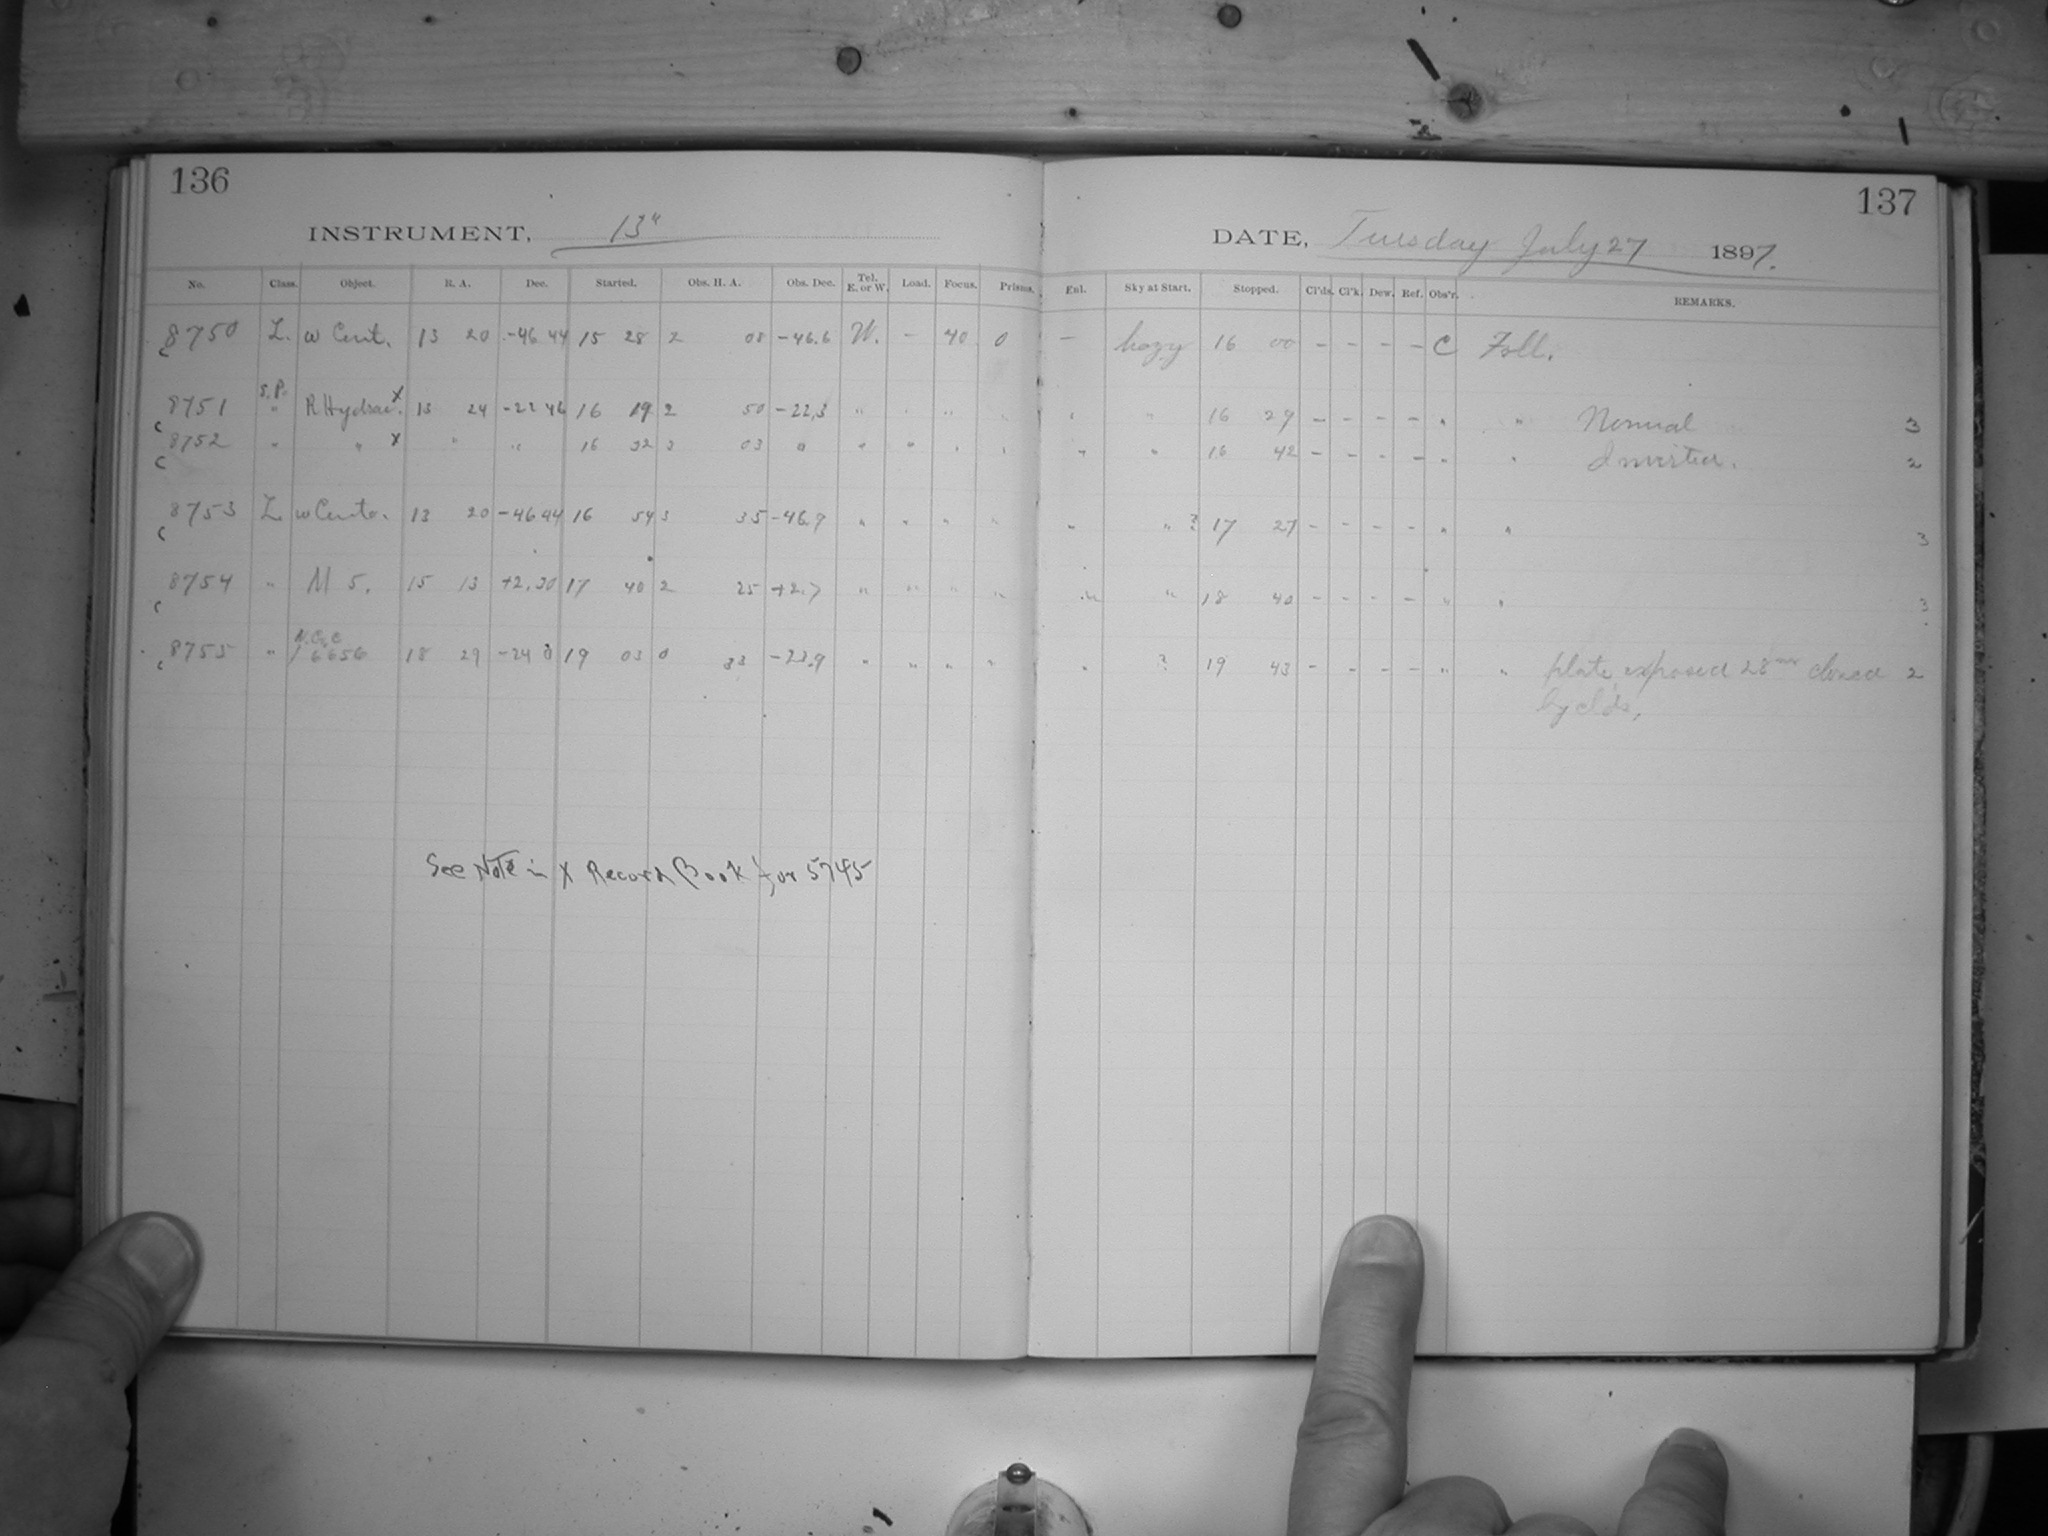 136
137
INSTRUMENT, 13"
DATE, Tuesday July 27 1897.
No. Class. Object. R. A. Dec. Started. Obs. H. A. Obs. Dec. Tel. E. or W. Load. Focus. Prisms. Enl. Sky at Start. Stopped. Cl'ds. Cl'k. Dew. Ref. Obs'r. REMARKS.
8750 L. w Cent. 13 20 -46 44 15 28 2 08 -46.6 W. - 40 0 - hazy 16 00 - - - - C Foll.
8751 S.P. " R Hydrae. x 13 24 -22 46 16 19 2 50 -22.3 " " " " " " 16 29 - - - - " " Normal 3
8752 " " x " " 16 32 3 03 " " " " " " " 16 42 - - - - " " Inverted. 2
8753 L w Cento. 13 20 -46 44 16 54 3 35 -46.7 " " " " " " ? 17 27 - - - - " " 3
8754 " M 5. 15 13 +2.30 17 40 2 25 +2.7 " " " " " " 18 40 - - - - " " 3
8755 " N.G.C. 6656 18 29 -24 0 19 03 0 33 -23.9 " " " " " ? 19 43 - - - - " " plate exposed 28 closed 2
by cl'ds.
See Note in X Record Book for 5745